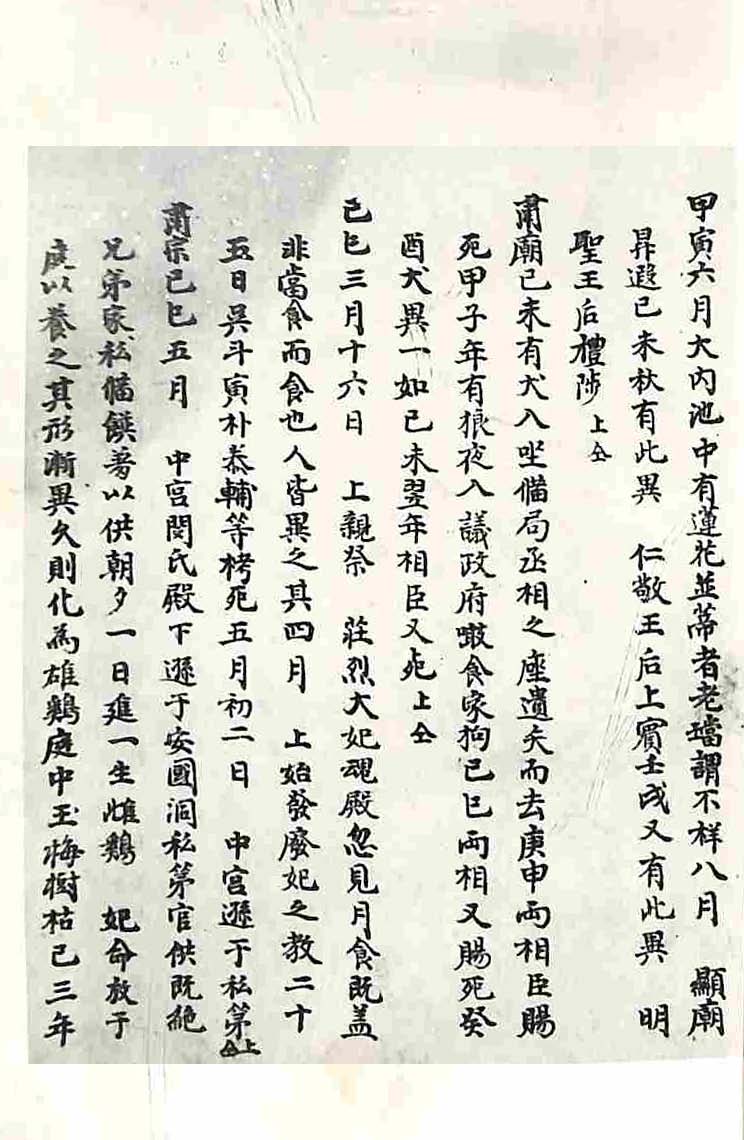 甲寅六月大內池中有蓮花並蔕者老璫謂不祥八月 顯廟
昇遐己未秋有此異 仁敬王后上賓壬戌又有此異 明
聖王后禮陟 上仝
肅廟己未有犬入坐備局丞相之座遺矢而去庚申兩相臣賜
死甲子年有狼夜入議政府噉食家狗己巳兩相又賜死癸
酉犬異一如己未翌年相臣又死 上仝
己巳三月十六日 上親祭 莊烈大妃魂殿忽見月食旣盖
非當食而食也人皆異之其四月 上始發廢妃之敎二十
五日吳斗寅朴泰輔等栲死五月初二日 中宮遜于私第 上仝
肅宗己巳五月 中宮閔氏殿下遜于安國洞私第官供旣絶
兄弟家私備饌著以供朝夕一日進一生雌鷄 妃命放于
庭以養之其形漸異久則化爲雄鷄庭中玉梅樹枯已三年